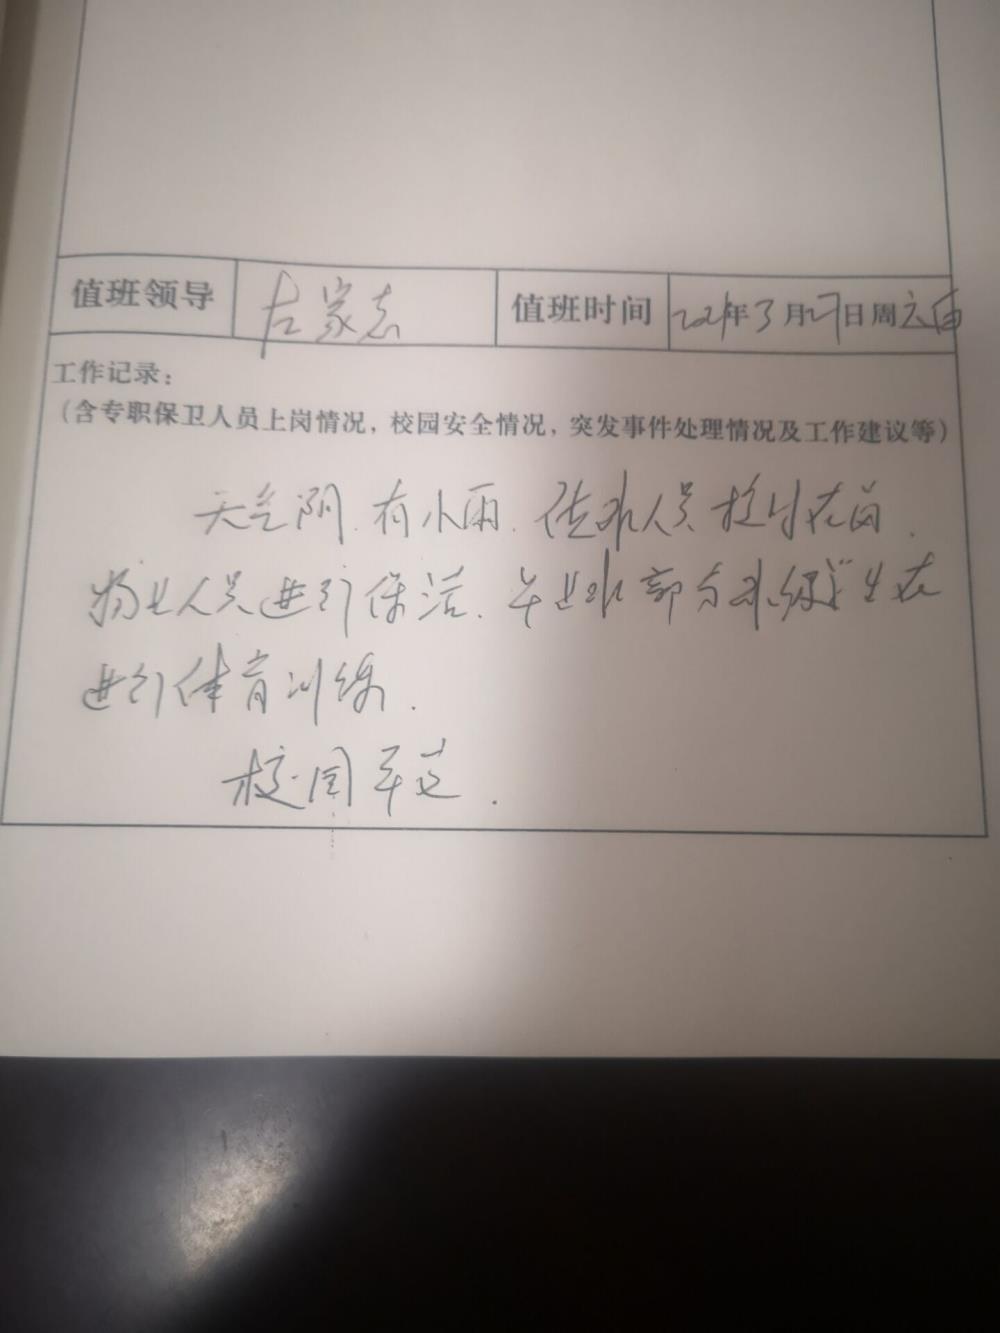 值班领导 左家志 值班时间 2021年3月27日周六
工作记录：
（含专职保卫人员上岗情况，校园安全情况，突发事件处理情况及工作建议等）
天气阴.有小雨.人员按时在岗.
物业人员进行保洁.毕业班部分班级学生在
进行体育训练.
校园平安.